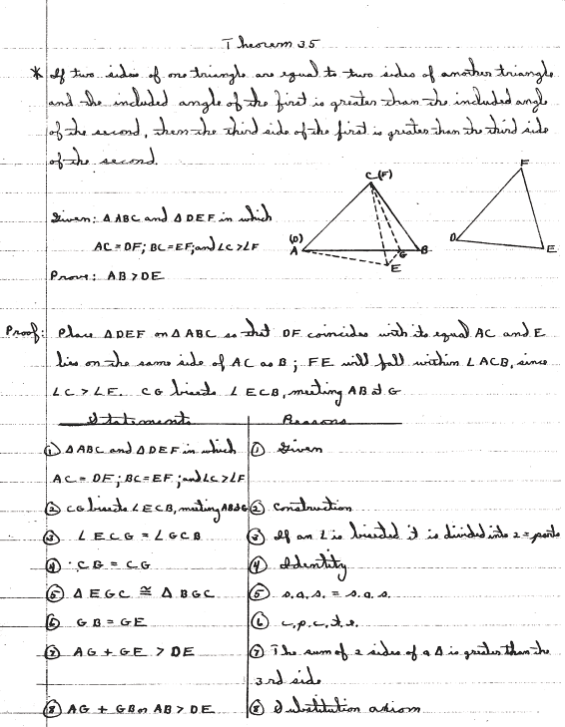 Theorem 35
* If two sides of one triangle are equal to two sides of another triangle
and the included angle of the first is greater than the included angle
of the second, then the third side of the first is greater than the third side
of the second.
C(F)
F
Given: △ABC and △DEF in which
AC = DF; BC = EF; and ∠C > ∠F
(D)
A
G
B
E
D
E
Prove: AB > DE
Proof: Place △DEF on △ABC so that DF coincides with its equal AC and E
lies on the same side of AC as B; FE will fall within ∠ACB, since
∠C > ∠F. CG bisects ∠ECB, meeting AB at G
Statements
Reasons
① △ABC and △DEF in which
① Given
AC = DF; BC = EF; and ∠C > ∠F
② CG bisects ∠ECB, meeting AB at G
② Construction
③ ∠ECG = ∠GCB
③ If an ∠ is bisected it is divided into 2 = parts
④ CG = CG
④ Identity
⑤ △EGC ≅ △BGC
⑤ s.a.s. = s.a.s.
⑥ GB = GE
⑥ c.p.c.t.e.
⑦ AG + GE > DE
⑦ The sum of 2 sides of a △ is greater than the
3rd side
⑧ AG + GB or AB > DE
⑧ Substitution axiom